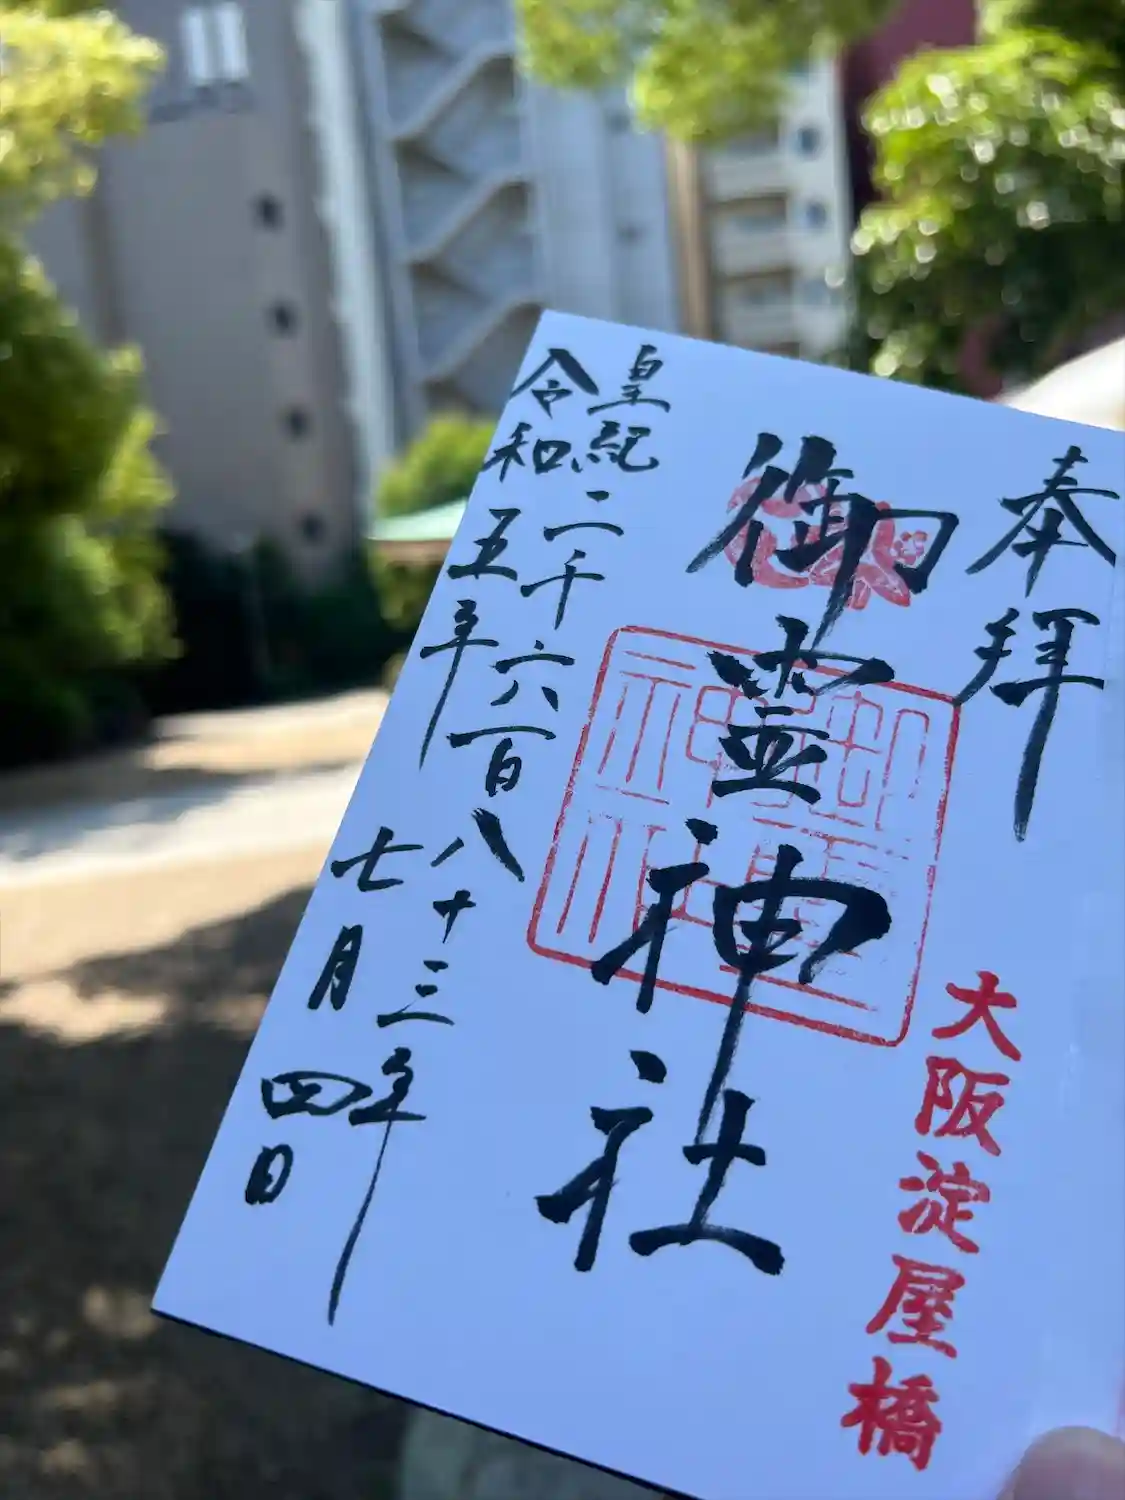 奉拝
大阪淀屋橋
御霊神社
皇紀二千六百八十三年
令和五年七月四日